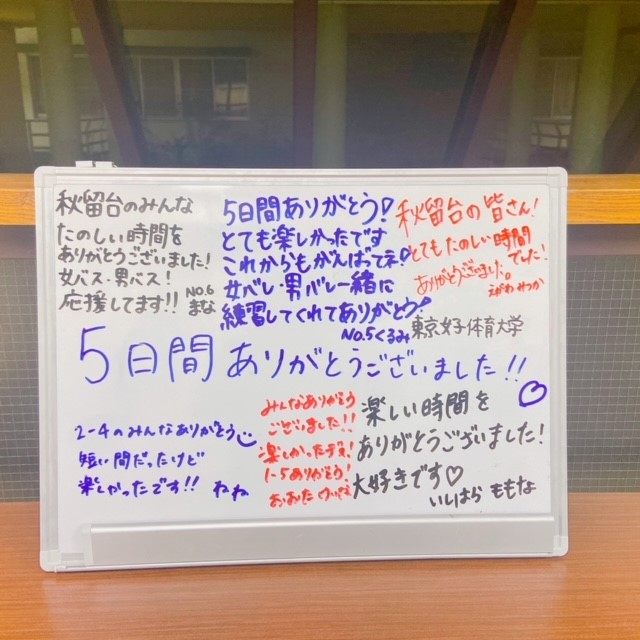 秋留台のみんな
たのしい時間を
ありがとうございました!
女バス・男バス!
応援してます!! No.6
まな
5日間ありがとう!
とても楽しかったです
これからもがんばってネ!
女バレ・男バレ一緒に
練習してくれてありがとう!
No.5くるみ
秋留台の皆さん!
とてもたのしい時間
でした!
ありがとうございました。
えがわ みつか
東京女子体育大学
5日間 ありがとうございました!!
2-4のみんなありがとう
短い間だったけど
楽しかったです!! ねね
みんなありがとう
ございました!!
楽しかったデス!
1-5ありがとう!
おおた
楽しい時間を
ありがとうございました!
大好きです♡
いしはら ももな